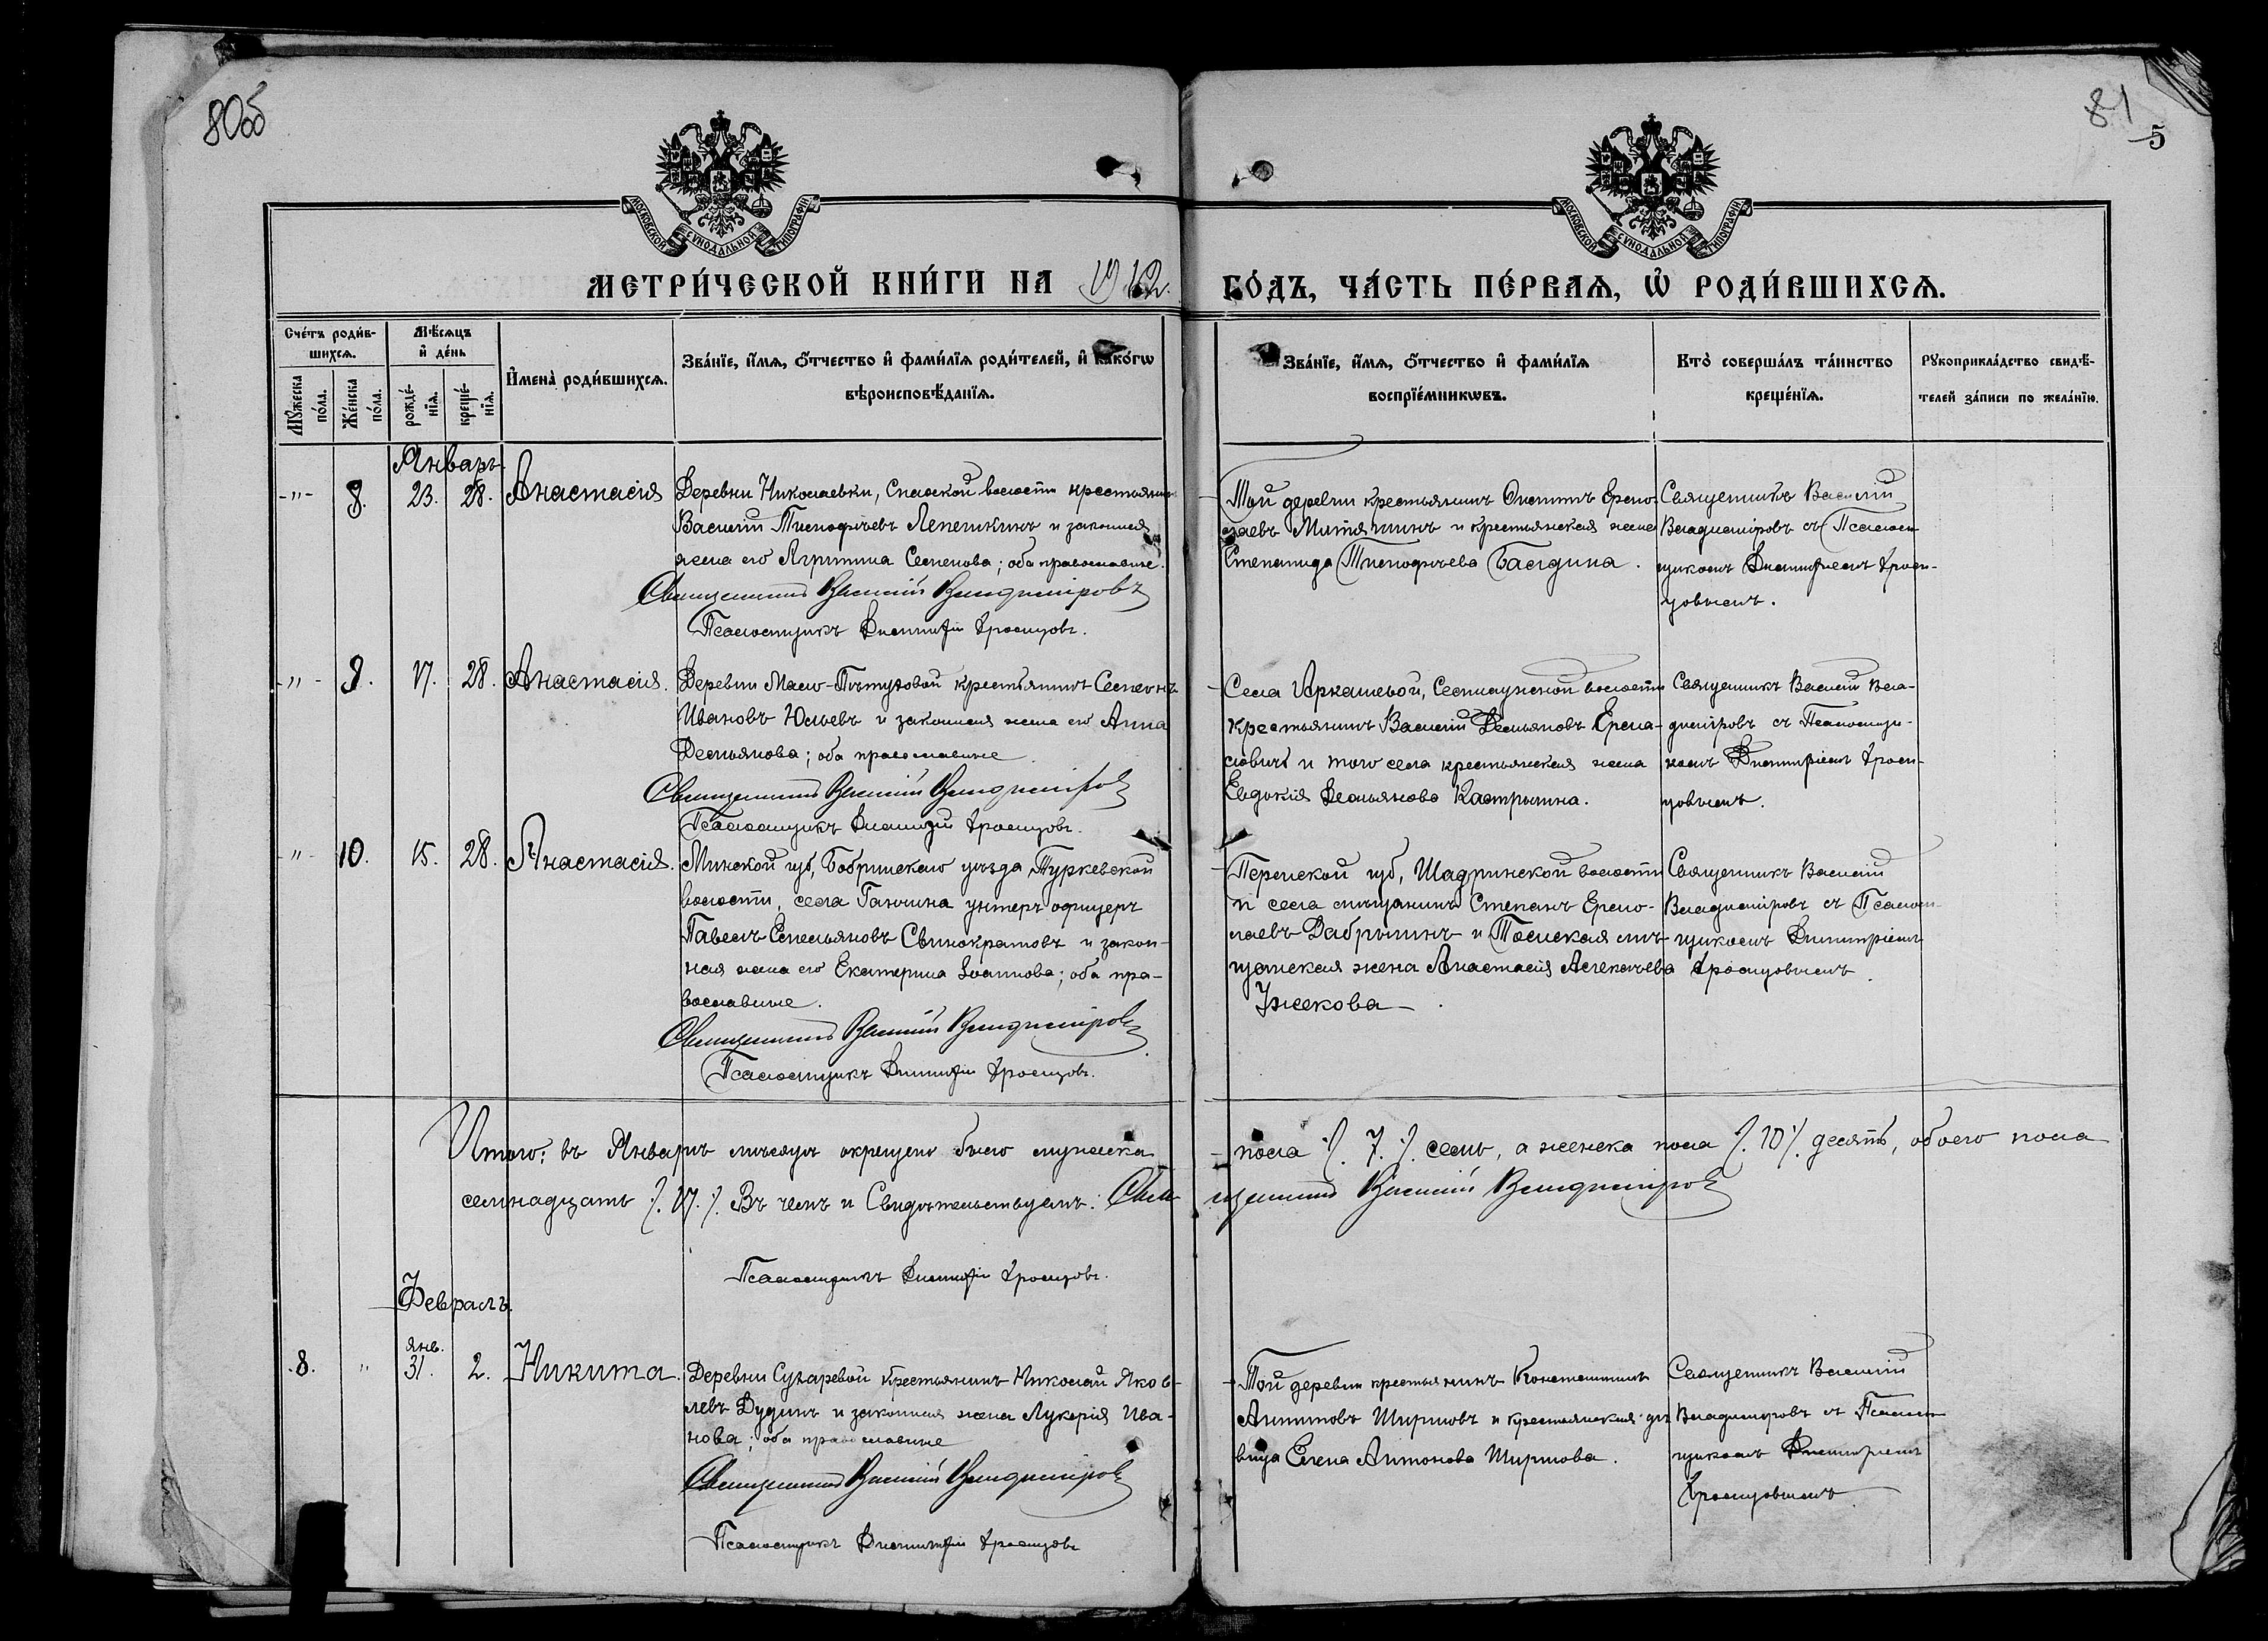 80об
81
5
МОСКОВСКОЙ СУНОДАЛЬНОЙ ТИПОГРАФІИ
МОСКОВСКОЙ СУНОДАЛЬНОЙ ТИПОГРАФІИ
МЕТРИ́ЧЕСКОЙ КНИ́ГИ НА 1912
ГО́ДЪ, ЧА́СТЬ ПЕ́РВАѦ, Ѽ РОДИ́ВШИХСѦ.
Сче́тъ роди́в-
шихсѧ.
Мꙋ́жеска по́ла.
Же́нска по́ла.
Мѣ́сѧцъ
и де́нь
рожде́-
нїѧ.
креще́-
нїѧ.
И҆мена̀ роди́вшихсѧ.
Зва́нїе, и҆́мѧ, ѻ҆́тчество и҆ фами́лїѧ роди́телей, и҆ како́гѡ
вѣроисповѣ́данїѧ.
Зва́нїе, и҆́мѧ, ѻ҆́тчество и҆ фами́лїѧ
воспрїе́мникѡвъ.
Кто̀ соверша́лъ та́инство
креще́нїѧ.
Рꙋкоприкла́дство свидѣ́-
телей за́писи по жела́нїю.
Январь
-"- 8. 23. 28. Анастасія
Деревни Николаевки, Спасской волости крестьянинъ
Василій Тимофѣевъ Лепешкинъ и законная
жена его Агрипина Семенова; оба православные.
Священникъ Василій Владиміровъ
Псаломщикъ Димитрій
Той деревни крестьянинъ Ермо-
лаевъ Митяшинъ и крестьянская жена
Степанида Тимофѣева Баядина.
Священникъ Василій
Владиміровъ съ Псалом-
щикомъ Димитріемъ
цовымъ.
-"- 9. 17. 28. Анастасія.
Деревни Мало-Пѣтуховой крестьянинъ Семенъ
Ивановъ Юльевъ и законная жена его Анна
Демьянова; оба православные
Священникъ Василій Владиміровъ
Псаломщикъ Димитрій
Села Аркашевой, волости
крестьянинъ Василій Демьяновъ Ерма-
ковичъ и того села крестьянская жена
Евдокія Демьянова Кастрыкина.
Священникъ Василій Вла-
диміровъ съ Псаломщи-
комъ Димитріемъ
цовымъ.
-"- 10. 15. 28. Анастасія.
Минской губ, Бобринскаго уѣзда Туркевской
волости, села Ганчина унтеръ офицеръ
Павелъ Емельяновъ Свинократовъ и закон-
ная жена его Екатерина Іоаннова; оба пра-
вославные.
Священникъ Василій Владиміровъ
Псаломщикъ Димитрій
Пермской губ, Шадринской волости
и села мѣщанинъ Степанъ Ермо-
лаевъ Дабрынинъ и Томская мѣ-
щанская жена Анастасія Алексѣева
Ужекова
Священникъ Василій
Владиміровъ съ Псалом-
щикомъ Димитріемъ
Итого: въ Январѣ мѣсяцѣ окрещено было мужеска
пола ./. 7 ./. семь, а женска пола ./. 10 ./. десять, обоего пола
семнадцать ./. 17 ./. Въ чемъ и Свидѣтельствуемъ: Свя-
щенникъ Василій Владиміровъ
Псаломщикъ Димитрій
Февраль.
янв.
8. " 31. 2. Никита.
Деревни Сухаревой крестьянинъ Николай Яков-
левъ Дудинъ и законная жена Лукерія Ива-
нова; оба православные
Священникъ Василій Владиміровъ
Псаломщикъ Димитрій
Той деревни крестьянинъ Константинъ
Антиповъ Ширшовъ и крестьянская дѣ-
вица Елена Антонова Ширшова.
Священникъ Василій
Владиміровъ съ Псалом-
щикомъ Димитріемъ